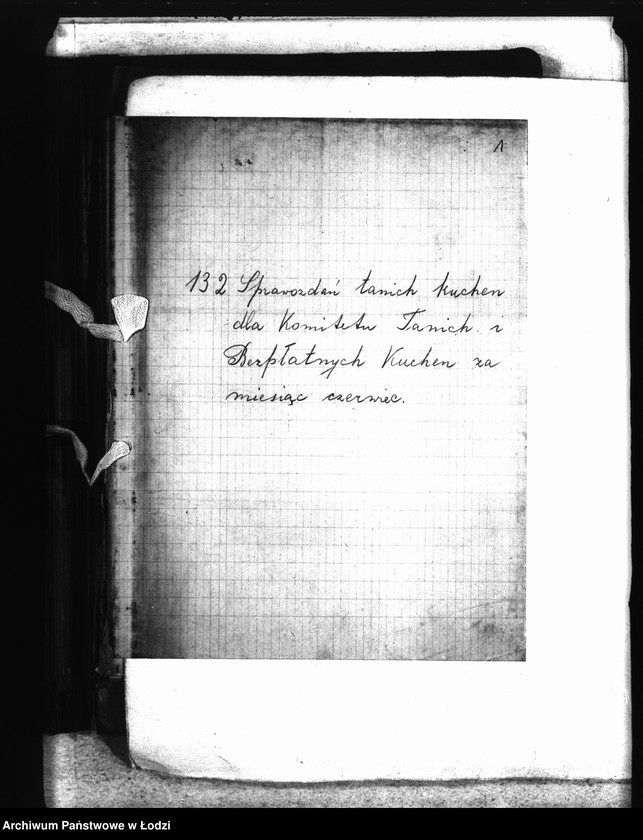 1
132 Sprawozdań tanich kuchen
dla Komitetu Tanich i
Bezpłatnych Kuchen za
miesiąc czerwiec.
Archiwum Państwowe w Łodzi